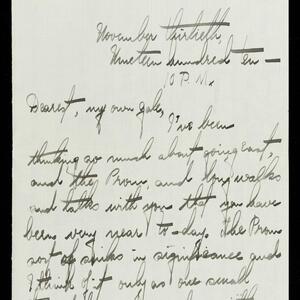 November thirtieth,
Nineteen hundred ten —
10 P.M.
Dearest, my own
I've been
thinking so much about going East,
and the Prom, and long walks
and talks with you that you have
been very near to-day. The Prom
sort of sinks in significance and
I think of it only as one small